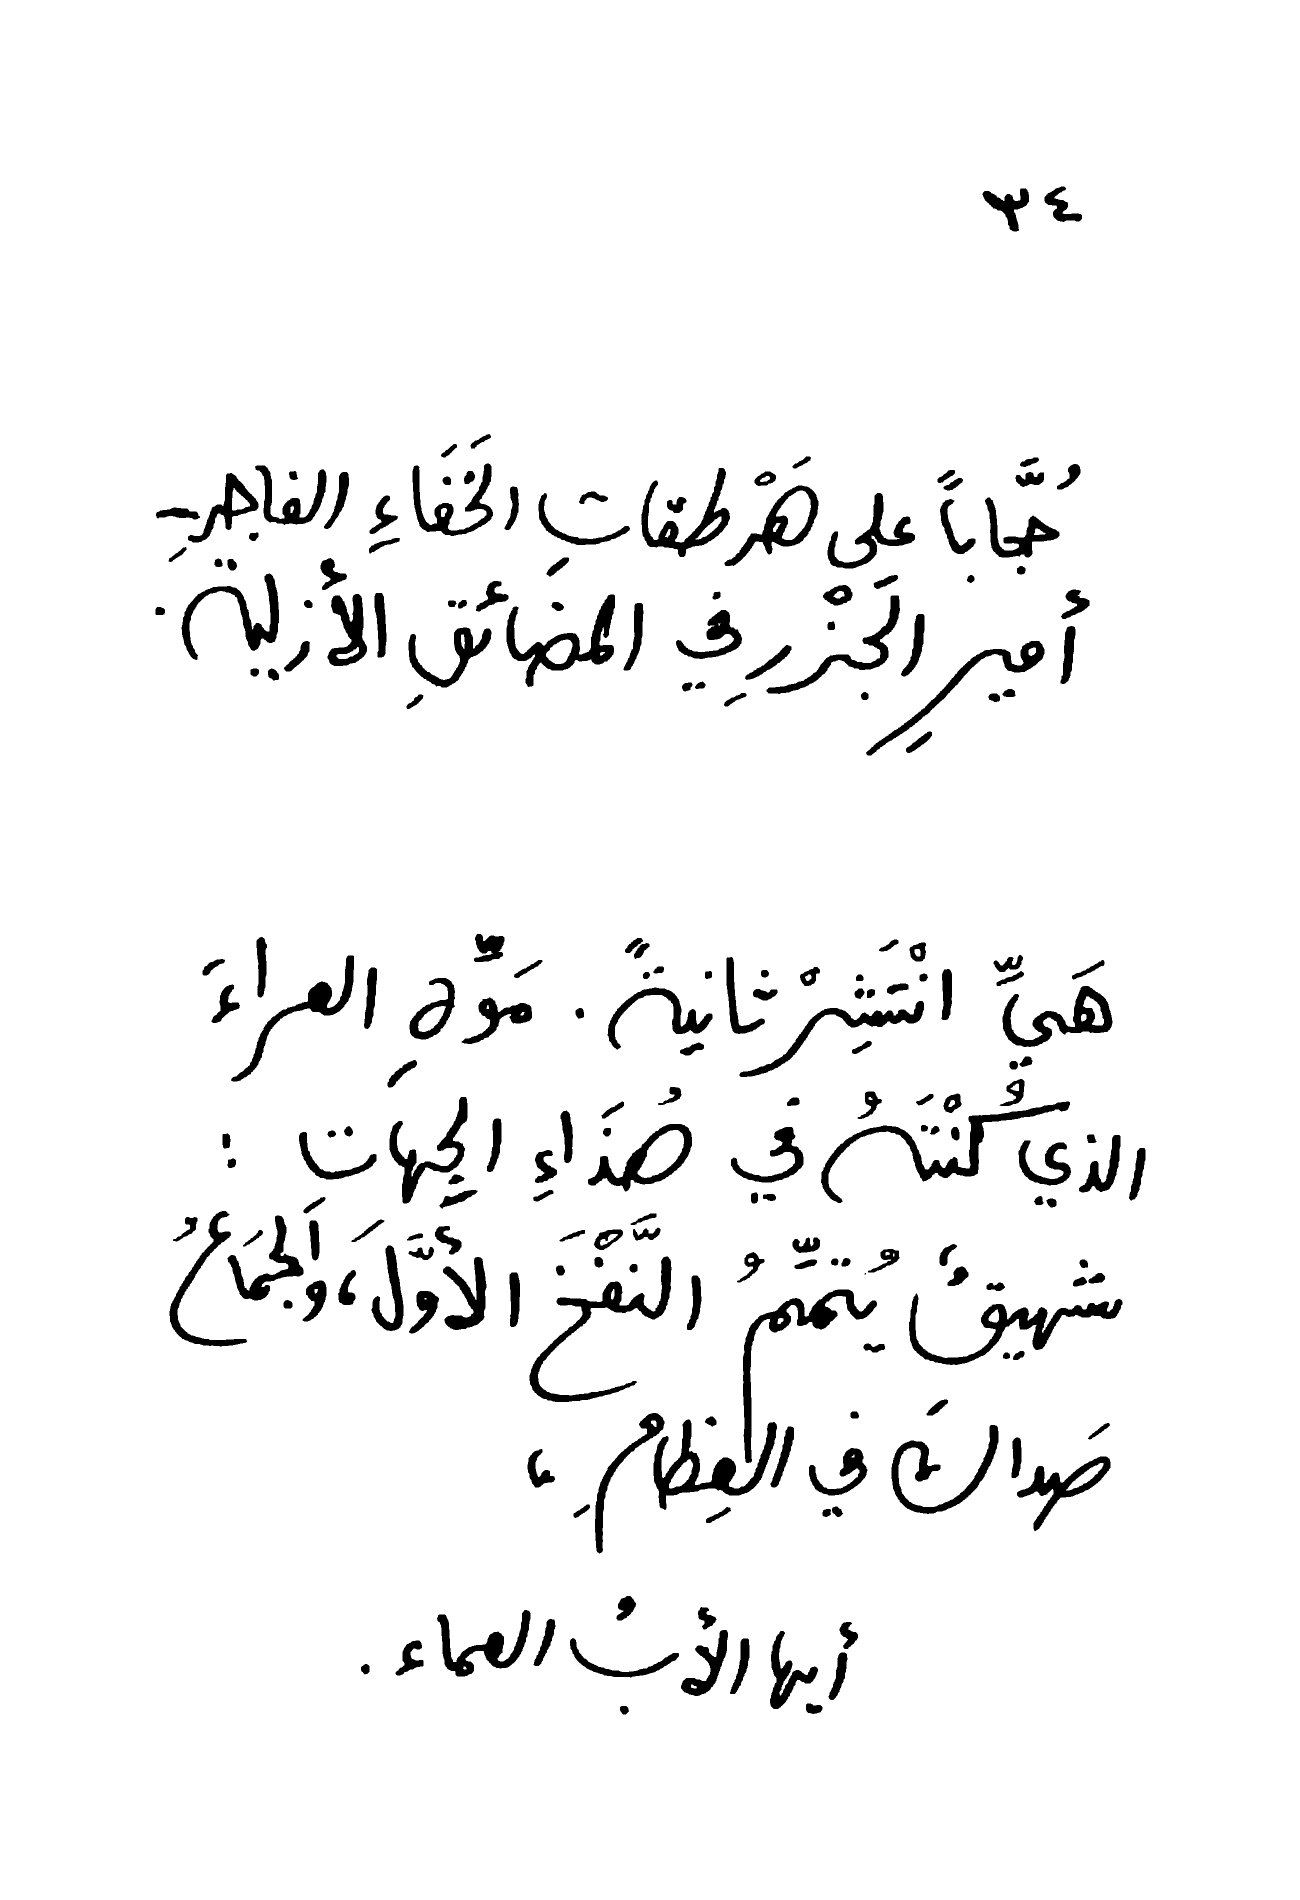 ٣٤
حُجَّاباً على هَرْطقاتِ الخَفَاءِ الفاجرِ –
أميرِ الجَزْرِ في المضائقِ الأزلية .
هَيِّ انْتَشِرْ ثانيةً . مَوِّهِ العراءَ
الذي كُنْتَهُ في صُدَاءِ الجِهات :
شهيقٌ يُتمِّمُ النَّفْخَ الأوَّلَ ، وَالجمَاعُ
صَداكَ في العِظامِ ،
أيها الأبُ العماء .